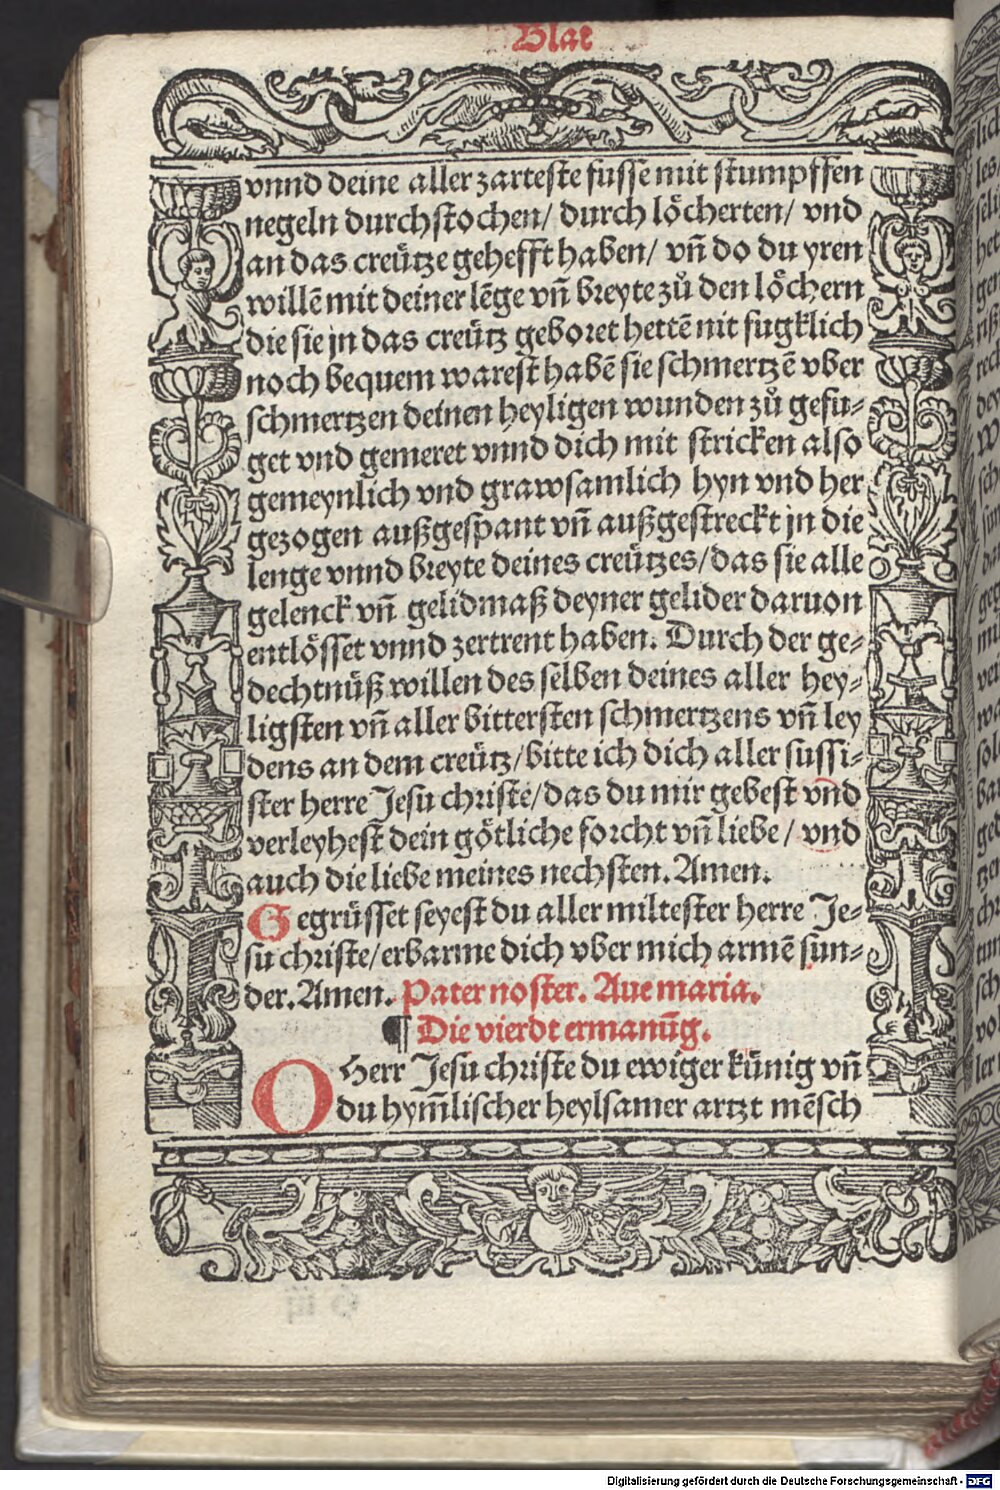 Blat
vnnd deine aller zarteste fusse mit stumpffen
negeln durchstochen/ durch löcherten/ vnd
an das creütze gehefft haben/ vñ do du yren
willē mit deiner lēge vñ breyte zů den löchern
die sie jn das creütz geboret hettē nit fugklich
noch bequem warest habē sie schmertzē vber
schmertzen deinen heyligen wunden zů gefu-
get vnd gemeret vnnd dich mit stricken also
gemeynlich vnd grawsamlich hyn vnd her
gezogen außgespant vñ außgestreckt jn die
lenge vnnd breyte deines creützes/das sie alle
gelenck vñ gelidmaß deyner gelider daruon
entlösset vnnd zertrent haben. Durch der ge-
dechtnüß willen des selben deines aller hey-
ligsten vñ aller bittersten schmertzens vñ ley
dens an dem creütz/bitte ich dich aller sussi-
ster herre Jesu christe/das du mir gebest vnd
verleyhest dein götliche forcht vñ liebe/ vnd
auch die liebe meines nechsten. Amen.
Gegrüsset seyest du aller miltester herre Je-
su christe/erbarme dich vber mich armē sün-
der. Amen. Pater noster. Aue maria.
¶ Die vierdt ermanūg.
O Herr Jesu christe du ewiger künig vñ
du hym̄lischer heylsamer artzt mēsch
Digitalisierung gefördert durch die Deutsche Forschungsgemeinschaft - DFG